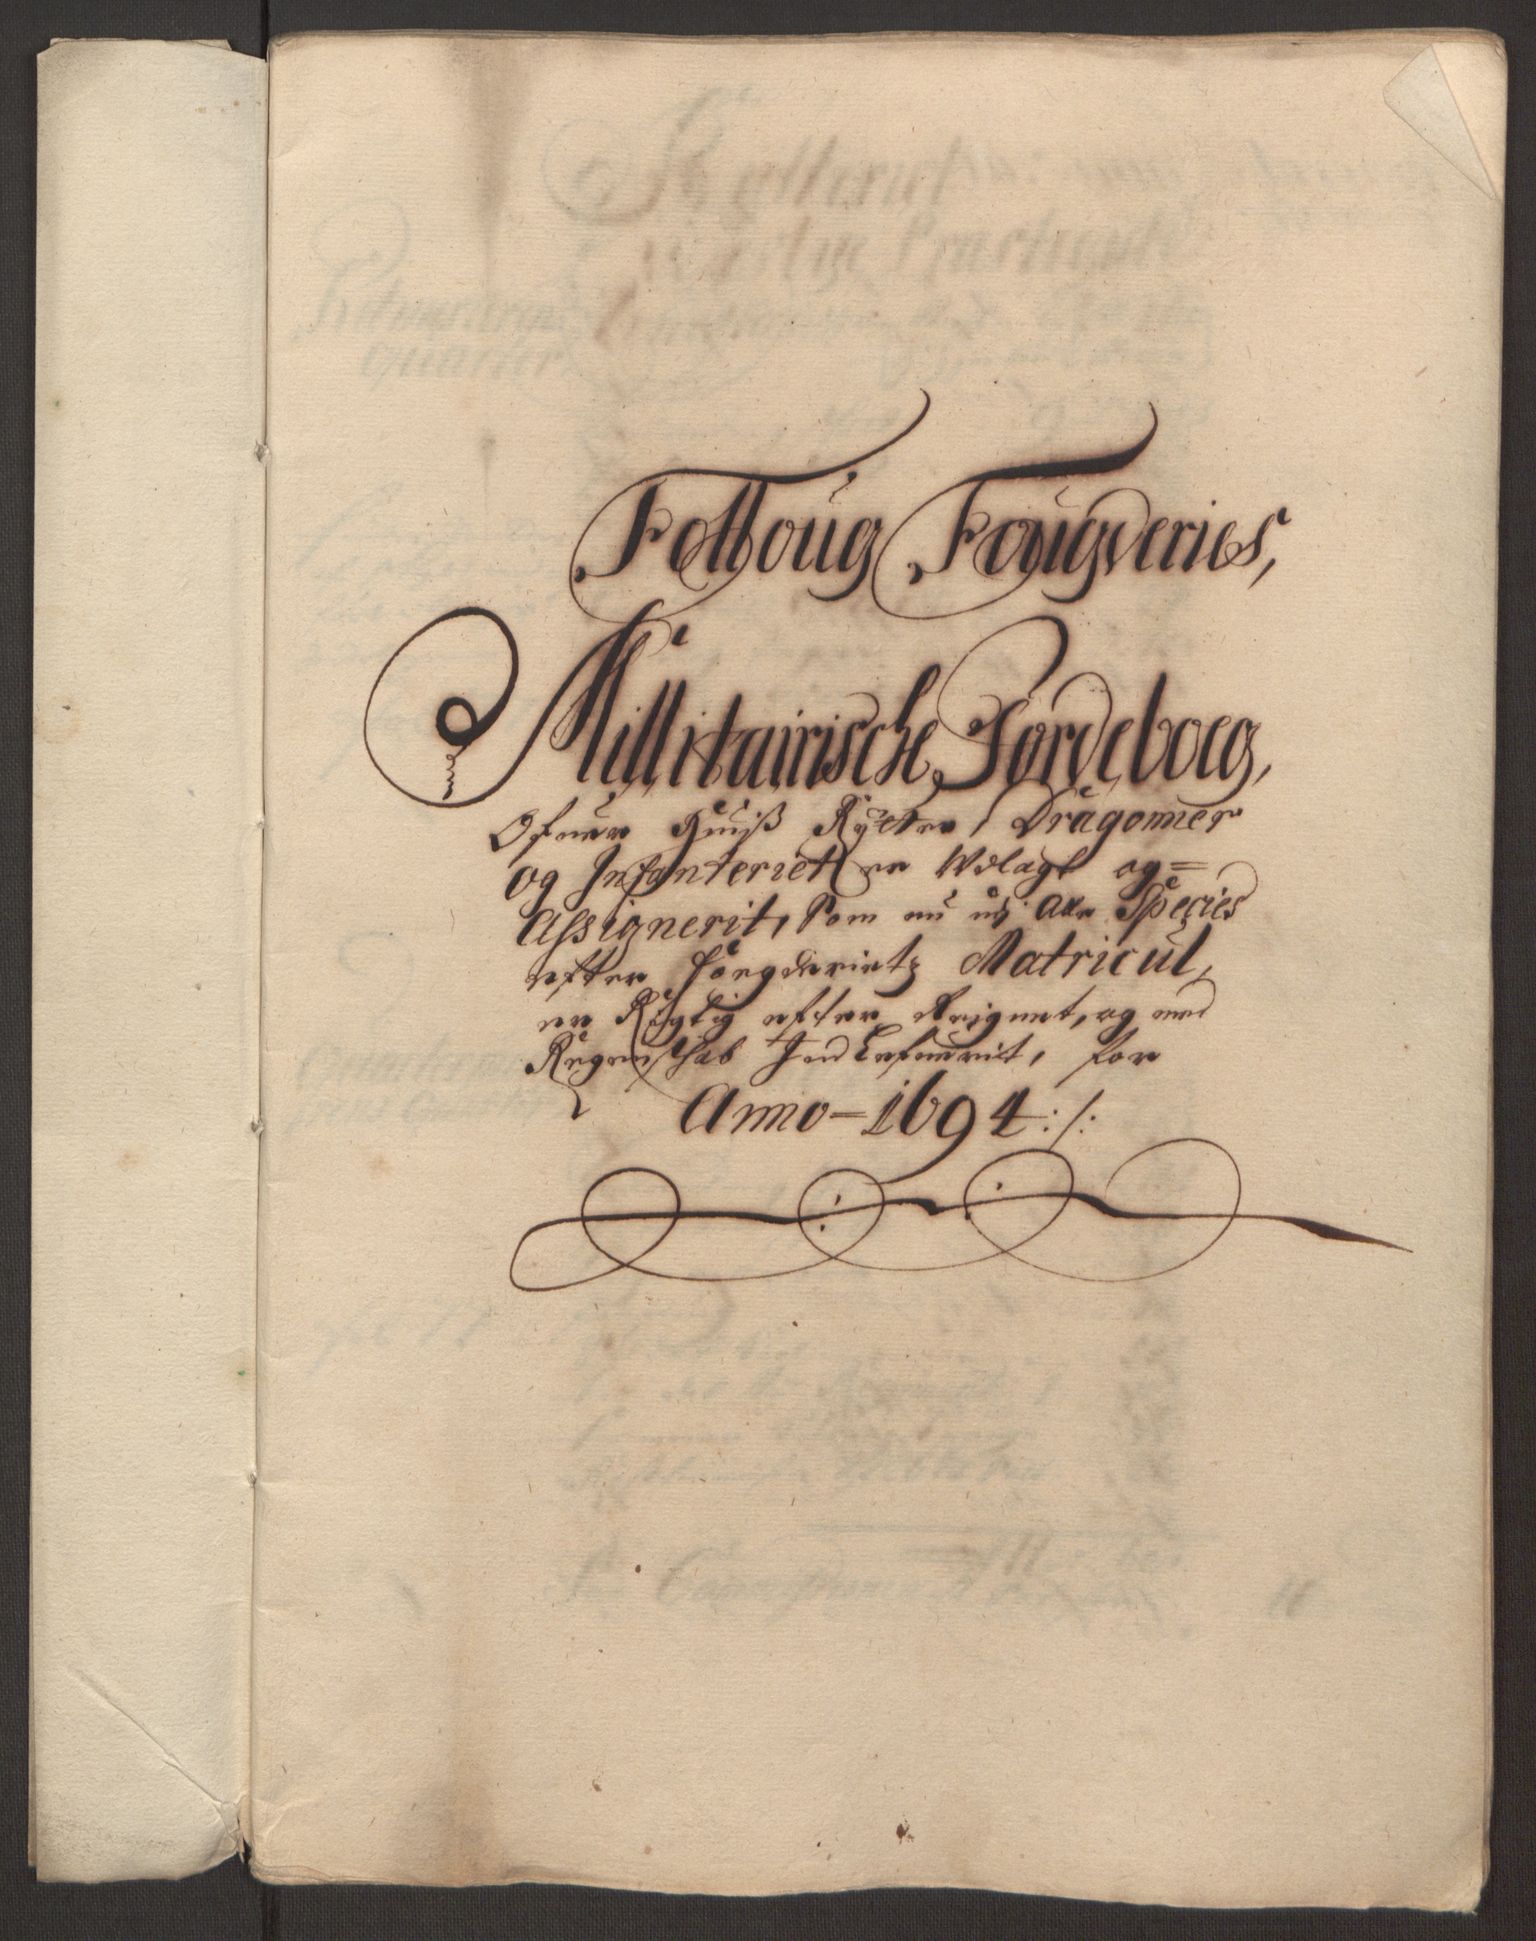 Folloug Fougderies,
Millitairische Jordeboeg,
Ofuer Huiß Rytter, Dragonner
og Infanteriet er Udlagt og=
Assignerit, Som nu udj alle Species
efter Foegderietz Matricul,
er Rigtig efter Reignet, og med
Regenskab Indlefuerit, for
Anno - 1694 :/: